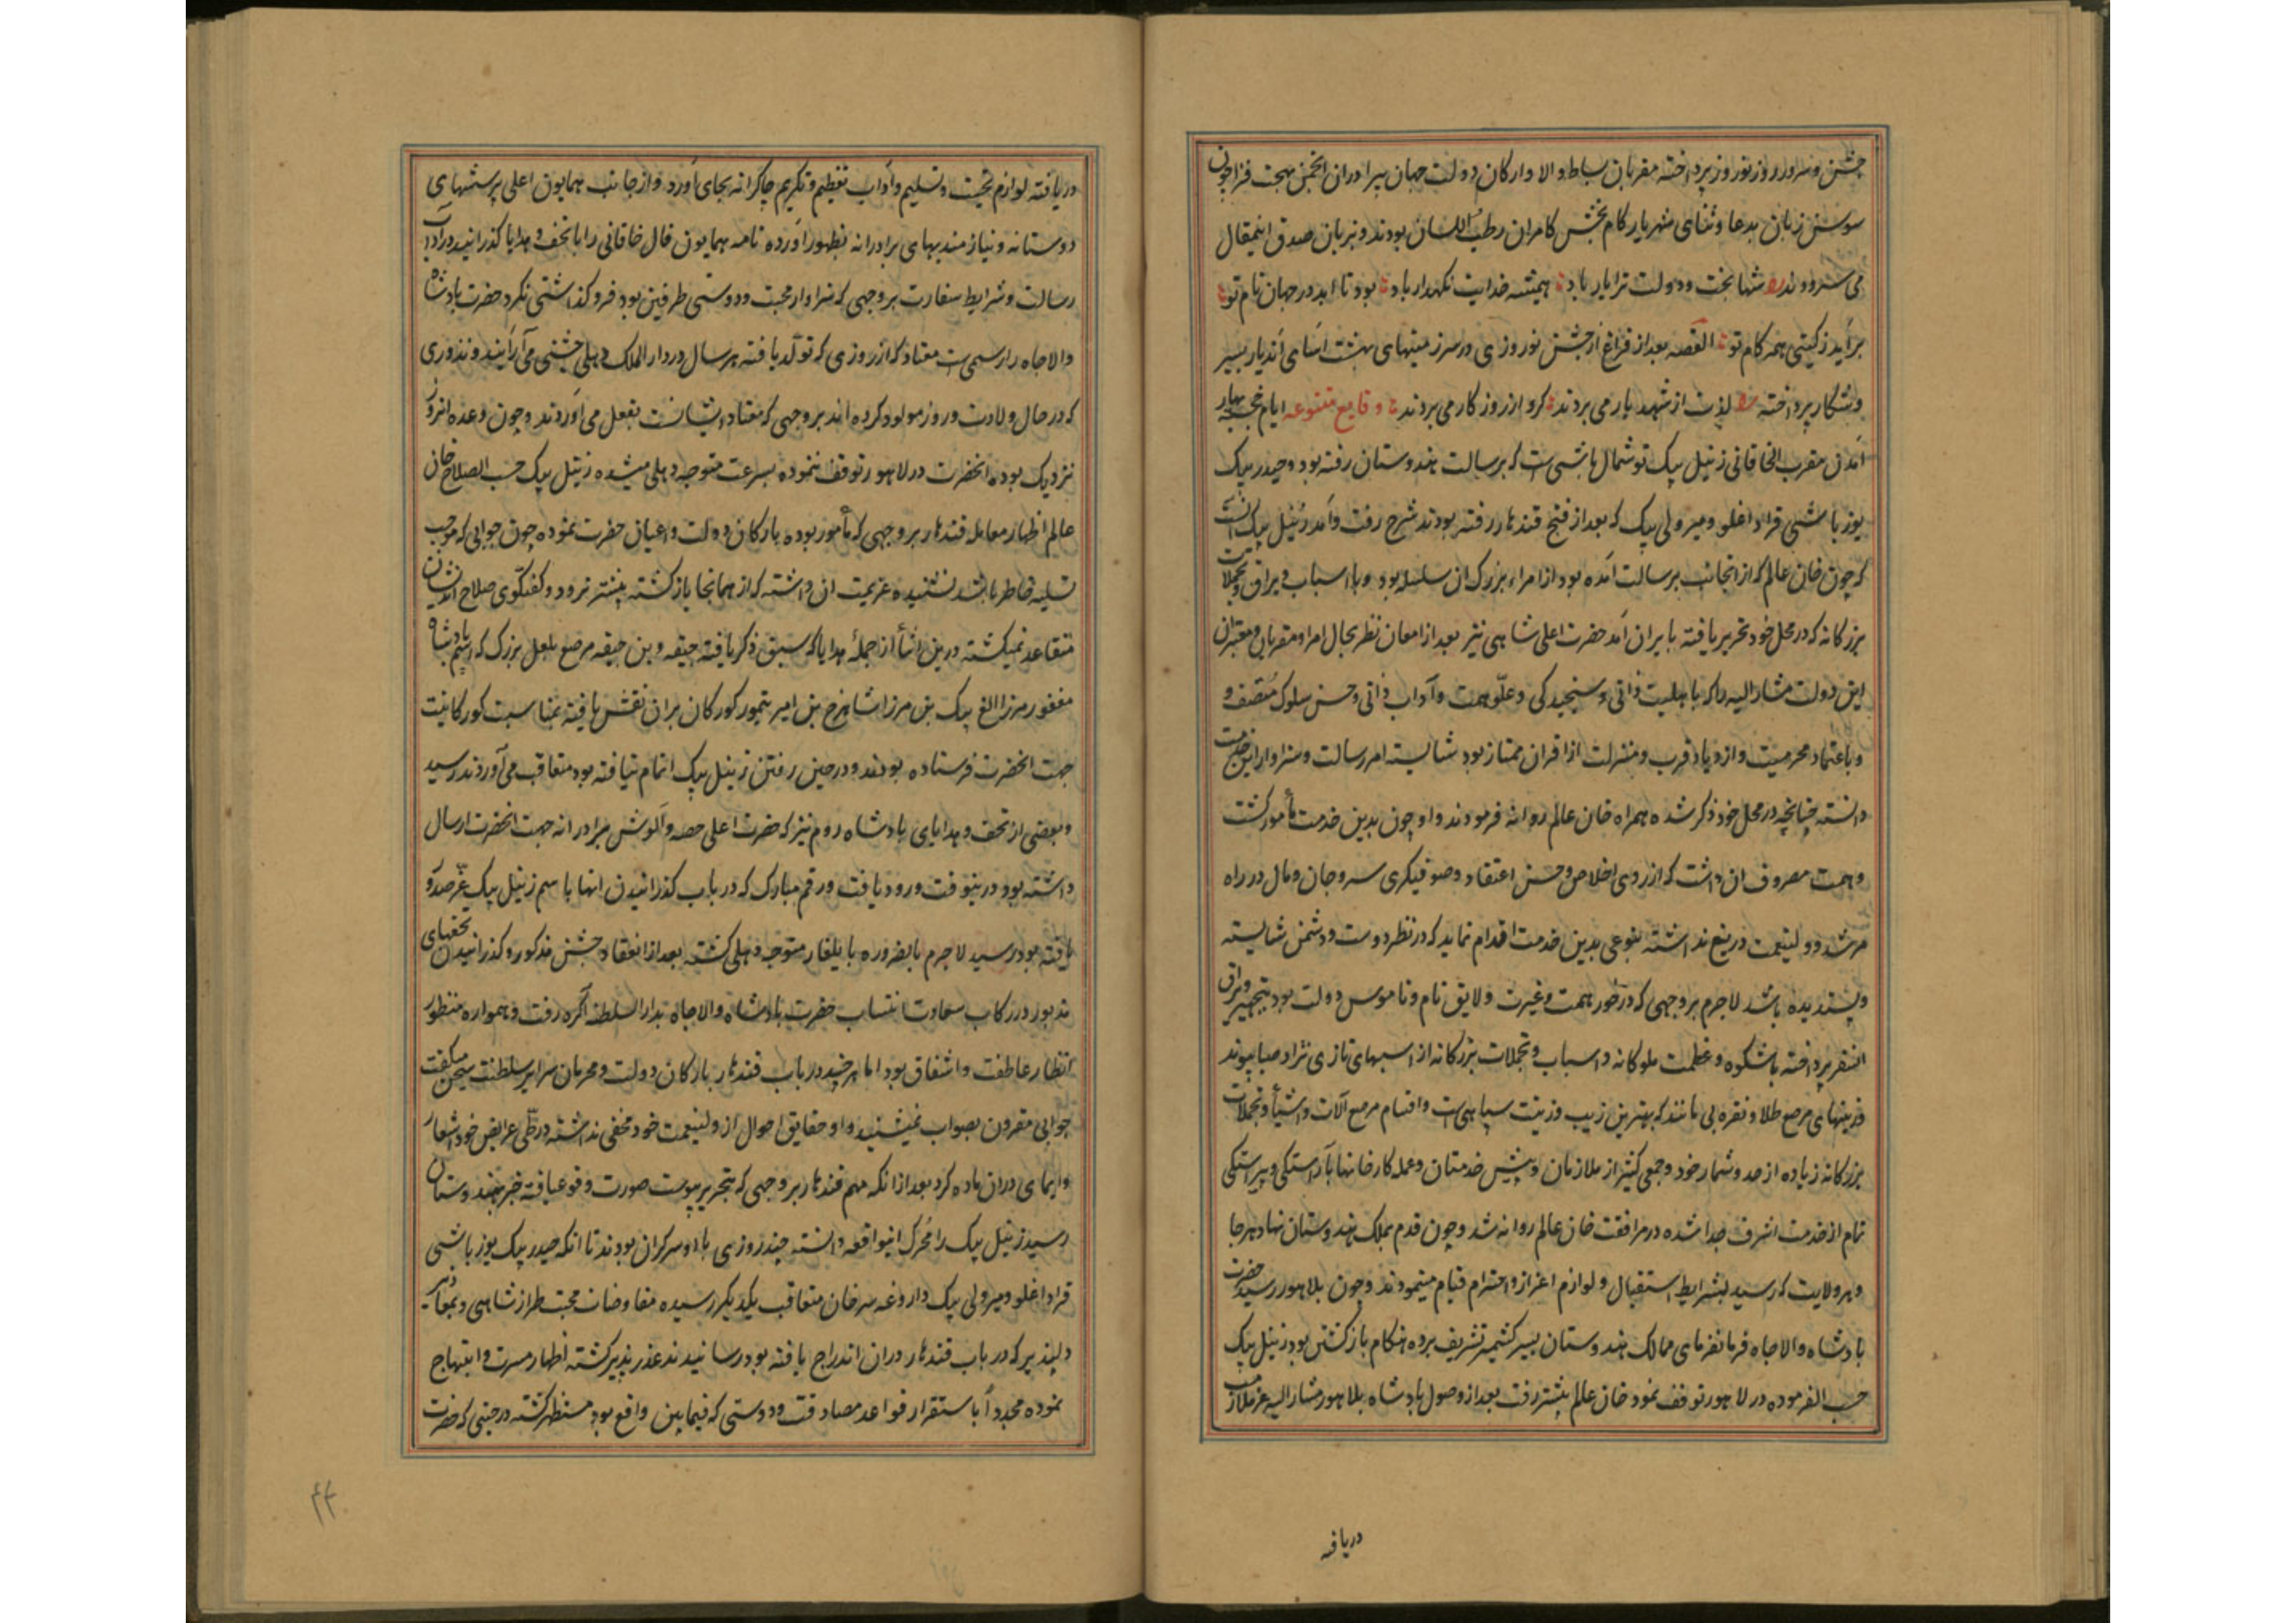 جشن و سرور روز نوروز پرداخته مقربان بساط والا و ارکان دولت جهان پیرا دران انجمن بهجت فزا چون
سوسن زبان بدعا و ثنای شهریار کام بخش کامران رطب اللسان بودند و بزبان صدق اینمقال
می سرودند شها بخت و دولت ترا یار باد همیشه خدایت نکهدار باد بود تا ابد در جهان نام تو
برآید ز کیتی همه کام تو القصه بعد از فراغ از جشن نوروزی در سرزمینهای بهشت آسای آندیار بسیر
و شکار پرداخته لذت از شهد یار می بردند کرو از روزکار می بردند وقایع متنوعه ایام خجسته بهار
آمدن مقرب الخاقانی زینل بیک توشمال باشی است که برسالت هندوستان رفته بود و حیدر بیک
یوز باشی قراداغلو و میر ولی بیک که بعد از فتح قندهار رفته بودند شرح رفت و آمد زینل بیک آنست
که چون خان عالم که از آنجانب برسالت آمده بود از امراء بزرک ان سلسله بود و با اسباب و یراق و تجملات
بزرکانه که در محل خود تحریر یافته بایران آمد حضرت اعلی شاهی نیز بعد از امعان نظر بحال امرا و مقربان و معتبران
این دولت مشارالیه را که باهلیت ذاتی و سنجیدکی و علو همت و آداب دانی و حسن سلوک متصف و
و باعتماد محرمیت و ازدیاد قرب و منزلت از اقران ممتاز بود شایسته امر رسالت و سزاوار این خدمت
دانسته چنانچه در محل خود ذکر شده همراه خان عالم روانه فرمودند و او چون بدین خدمت مأمور کشت
و همت مصروف ان داشت که از روی اخلاص و حسن اعتقاد و صوفیکری سر و جان و مال در راه
مرشد و ولینعمت دریغ نداشته بنوعی بدین خدمت اقدام نماید که در نظر دوست و دشمن شایسته
و پسندیده باشد لاجرم بر وجهی که درخور همت و غیرت و لایق نام و ناموس دولت بود بتجهیز و یراق
انسفر پرداخته باشکوه و عظمت ملوکانه و اسباب و تجملات بزرکانه از اسبهای تازی نژاد صبا پیوند
و زینهای مرصع طلا و نقره بی مانند که بهترین زیب و زینت سپاهی است و اقسام مرصع آلات و اشیأ و تجملات
بزرکانه زیاده از حد و شمار خود و جمعی کثیر از ملازمان و پیش خدمتان و عمله کارخانها بآراستکی و پیراستکی
تمام از خدمت اشرف جدا شده در مرافقت خان عالم روانه شد و چون قدم بملک هندوستان نهاد هرجا
و بهر ولایت که رسید بشرایط استقبال و لوازم اعزاز و احترام قیام مینمودند و چون بلاهور رسید حضرت
پادشاه والاجاه فرمانفرمای ممالک هندوستان بسیر کشمیر تشریف برده هنکام بازکشتن بود زینل بیک
حسب الفرموده در لاهور توقف نمود خان عالم پیشتر رفت بعد از وصول پادشاه بلاهور مشارالیه عز ملازمت
دریافته
دریافته لوازم تحیت و تسلیم و آداب تعظیم و تکریم چاکرانه بجای آورد و از جانب همایون اعلی پرسشهای
دوستانه و نیازمندیهای برادرانه بظهور آورده نامه همایون فال خاقانی را با تحف و هدایا کذرانید در آداب
رسالت و شرایط سفارت بر وجهی که سزاوار محبت و دوستی طرفین بود فروکذاشتی نکرد حضرت پادشاه
والاجاه را رسمی است معتاد که از روزی که تولد یافته هر سال در دار الملک دهلی جشنی می آرایند و نذوری
که در حال ولادت و روز مولود کرده اند بر وجهی که معتاد ایشانست بفعل می آوردند و چون وعده انروز
نزدیک بوده انحضرت در لاهور توقف ننموده بسرعت متوجه دهلی میشده زینل بیک حسب الصلاح خان
عالم اظهار معامله قندهار بر وجهی که مأمور بوده بارکان دولت و اعیان حضرت نموده چون جوابی که موجب
تسلیه خاطر باشد نشنیده عزیمت ان داشته که از همانجا بازکشته پیشتر نرود و کفتکوی صلاح اندیشان
متقاعد نمیکشته درین اثنأ از جمله هدایا که سبق ذکر یافته جیقه و بن جیقه مرصع بلعل بزرک که رسم پادشاه
مغفور مرزا الغ بیک بن مرزا شاهرخ بن امیر تیمور کورکان بران نقش یافته بمناسبت کورکانیت
جهت انحضرت فرستاده بودند و در حین رفتن زینل بیک اتمام نیافته بود متعاقب می آوردند رسید
و بعضی از تحف و هدایای پادشاه روم نیز که حضرت اعلی حصه و آلوش برادرانه جهت انحضرت ارسال
داشته بود درینوقت ورود یافت و رقم مبارک که در باب کذرانیدن انها باسم زینل بیک عز صدور
یافته بود رسید لاجرم بالضروره بایلغار متوجه دهلی کشته بعد از انعقاد جشن مذکور و کذرانیدن تحفهای
مذبور در رکاب سعادت انتساب حضرت پادشاه والاجاه بدار السلطنه آکره رفت و همواره منظور
انظار عاطفت و اشفاق بود اما هر چند در باب قندهار بارکان دولت و محرمان سرایر سلطنت سخن میکفت
جوابی مقرون بصواب نمیشنید و او حقایق احوال از ولینعمت خود مخفی نداشته در طی عرایض خود اشعار
و ایمای دران ماده کرد بعد از انکه مهم قندهار بر وجهی که بتحریر پیوست صورت وقوع یافته خبر بهندوستان
رسید زینل بیک را محرک اینواقعه دانسته چند روزی با او سرکران بودند تا انکه حیدر بیک یوز باشی
قراداغلو و میر ولی بیک داروغه سرخان متعاقب یکدیکر رسیده مفاوضات محبت طراز شاهی و بمعاذیر
دلپذیر که در باب قندهار دران اندراج یافته بود رسانیدند عذر پذیر کشته اظهار مسرت و ابتهاج
نموده مجدداً باستقرار قواعد مصادقت و دوستی که فیمابین واقع بود مستظهر کشته در حینی که حضرت